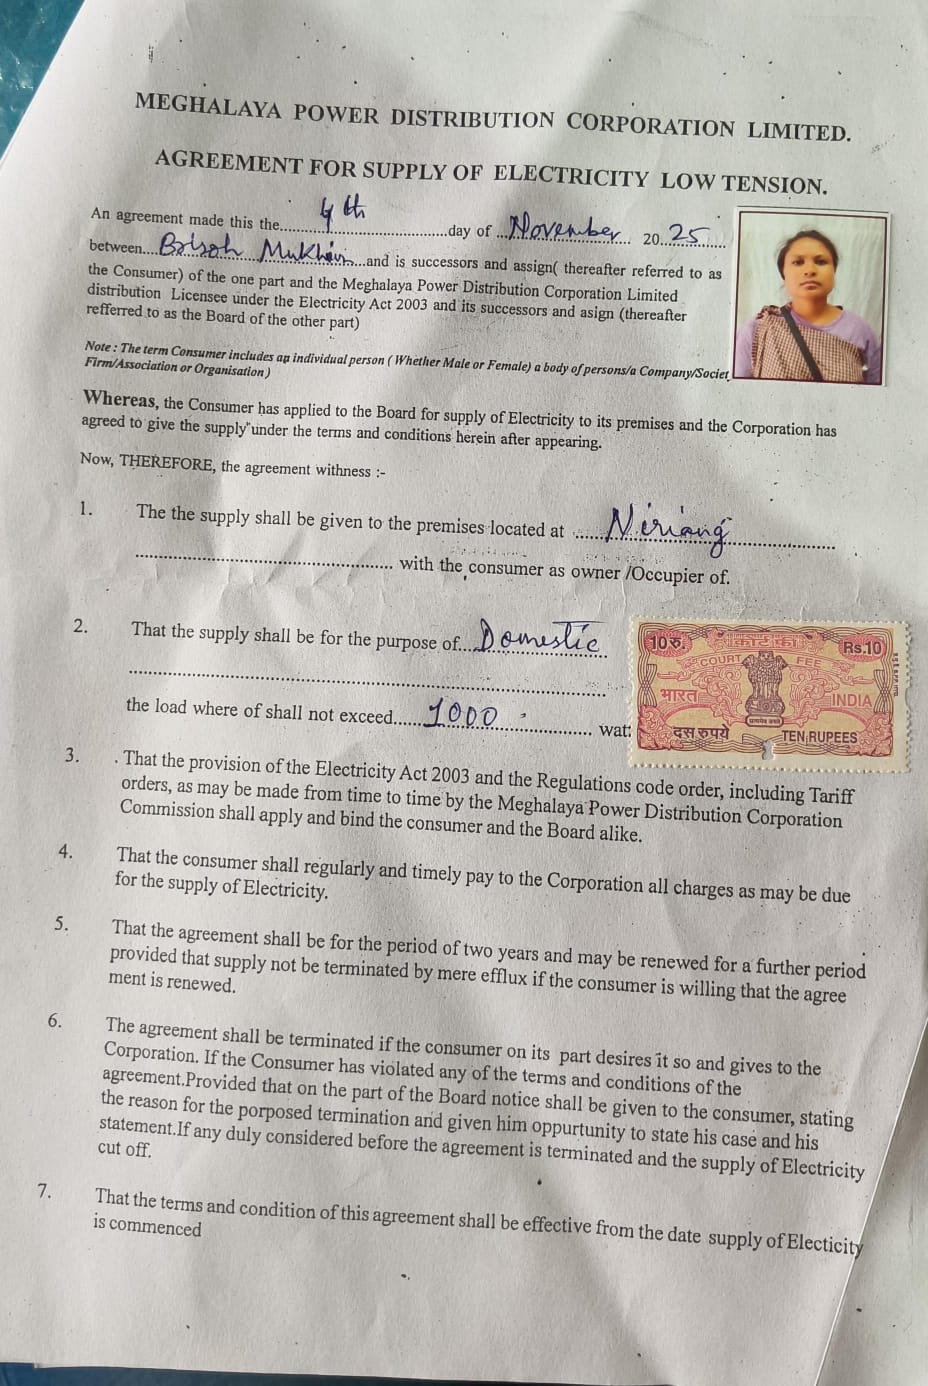 MEGHALAYA POWER DISTRIBUTION CORPORATION LIMITED.
AGREEMENT FOR SUPPLY OF ELECTRICITY LOW TENSION.
An agreement made this the 4th day of November 2025
between.... Mukhim ...and is successors and assign( thereafter referred to as
the Consumer) of the one part and the Meghalaya Power Distribution Corporation Limited
distribution Licensee under the Electricity Act 2003 and its successors and asign (thereafter
refferred to as the Board of the other part)
Note : The term Consumer includes an individual person ( Whether Male or Female) a body of persons/a Company/Societ
Firm/Association or Organisation)
Whereas, the Consumer has applied to the Board for supply of Electricity to its premises and the Corporation has
agreed to give the supply under the terms and conditions herein after appearing.
Now, THEREFORE, the agreement withness :-
1. The the supply shall be given to the premises located at ...... Niriang
with the consumer as owner /Occupier of.
2. That the supply shall be for the purpose of... Domestic
the load where of shall not exceed...... 1000 wat
10रु. कोर्ट फी Rs.10
COURT FEE
भारत INDIA
सत्यमेव जयते
दस रुपये TEN RUPEES
3. . That the provision of the Electricity Act 2003 and the Regulations code order, including Tariff
orders, as may be made from time to time by the Meghalaya Power Distribution Corporation
Commission shall apply and bind the consumer and the Board alike.
4. That the consumer shall regularly and timely pay to the Corporation all charges as may be due
for the supply of Electricity.
5. That the agreement shall be for the period of two years and may be renewed for a further period
provided that supply not be terminated by mere efflux if the consumer is willing that the agree
ment is renewed.
6. The agreement shall be terminated if the consumer on its part desires it so and gives to the
Corporation. If the Consumer has violated any of the terms and conditions of the
agreement.Provided that on the part of the Board notice shall be given to the consumer, stating
the reason for the porposed termination and given him oppurtunity to state his case and his
statement.If any duly considered before the agreement is terminated and the supply of Electricity
cut off.
7. That the terms and condition of this agreement shall be effective from the date supply of Electicity
is commenced